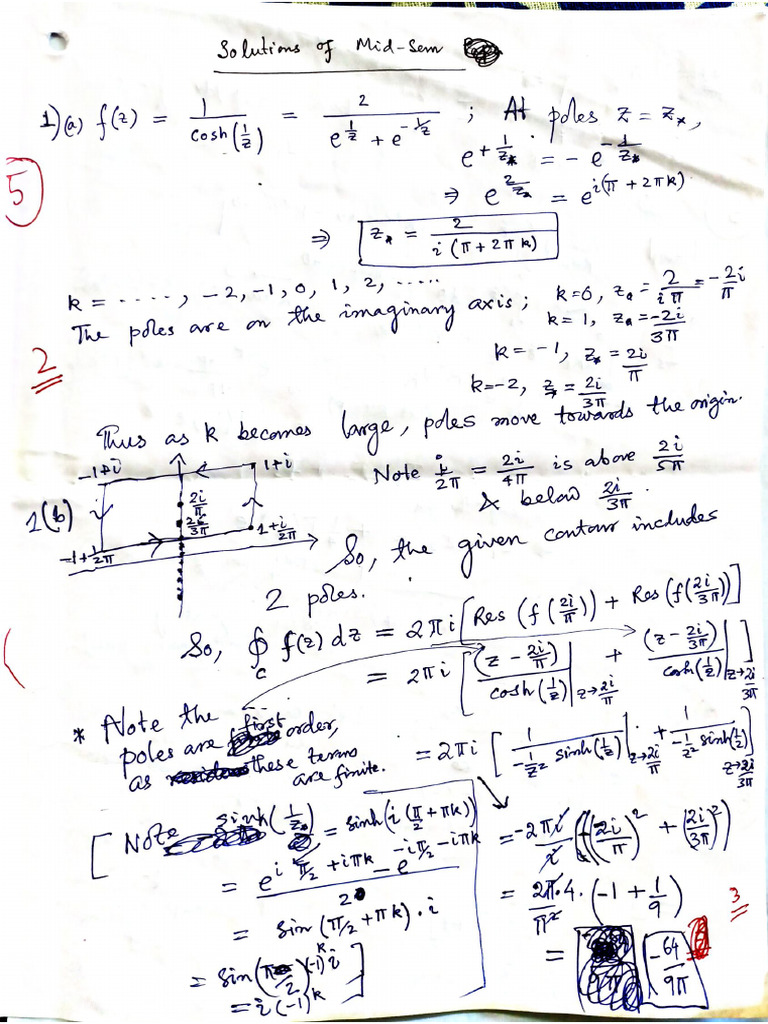 Solutions of Mid-Sem
1)(a) f(z) = 1/cosh(1/z) = 2/(e^{1/z} + e^{-1/z}) ; At poles z = z_*,
e^{+1/z_*} = - e^{-1/z_*}
5
⇒ e^{2/z_*} = e^{i(π + 2πk)}
⇒ z_* = 2/(i(π + 2πk))
k = ....., -2, -1, 0, 1, 2, .....
The poles are on the imaginary axis; k=0, z_* = 2/(iπ) = -2i/π
k=1, z_* = -2i/3π
2
k=-1, z_* = 2i/π
k=-2, z_* = 2i/3π
Thus as k becomes large, poles move towards the origin.
-1+i 1+i
Note i/2π = 2i/4π is above 2i/5π
& below 2i/3π.
1(b)
2i/π
2i/3π
-1+i/2π 1+i/2π
So, the given contour includes
2 poles.
So, ∮_c f(z) dz = 2πi [Res (f(2i/π)) + Res (f(2i/3π))]
= 2πi [ (z - 2i/π)/cosh(1/z) |_{z→2i/π} + (z - 2i/3π)/cosh(1/z) |_{z→2i/3π} ]
* Note the
poles are first order,
as these terms
are finite.
= 2πi [ 1/(-1/z² sinh(1/z)) |_{z→2i/π} + 1/(-1/z² sinh(1/z)) |_{z→2i/3π} ]
[ Note sinh(1/z_*) = sinh(i(π/2 + πk))
= (e^{iπ/2 + iπk} - e^{-iπ/2 - iπk})/2
= sin(π/2 + πk) · i
= sin(π/2) (-1)^k i ]
= i(-1)^k
= -2πi/i (-(2i/π)² + (2i/3π)²)
= 2π/π² · 4 · (-1 + 1/9)
3
= -64/9π